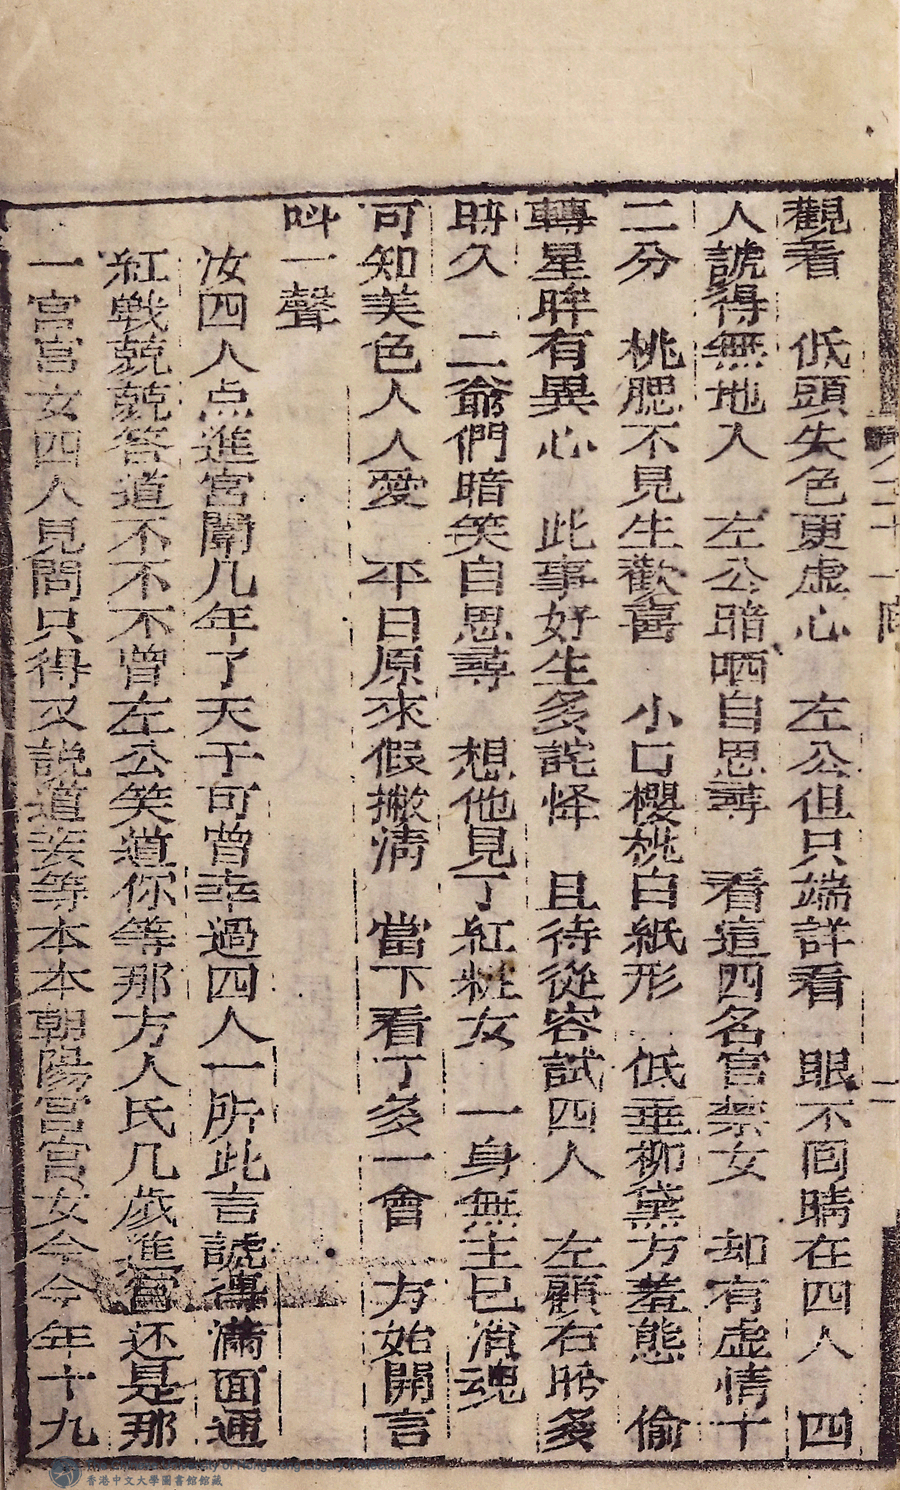 觀看　低頭失色更虛心　左公但只端詳看　眼不回睛在四人　四
人諕得無地入　左公暗哂自思尋　看這四名宮禁女　却有虛情十
二分　桃腮不見生歡喜　小口櫻桃白紙形　低垂柳黛方羞態　偷
轉星眸有異心　此事好生多詫怿　且待從容試四人　左顧右盼多
時久　二爺們暗笑自思尋　想他見了紅粧女　一身無主已消魂
可知美色人人愛　平日原來假撇淸　當下看了多一會　方始開言
呌一聲
汝四人点進宮闈几年了天子可曾幸過四人一所此言諕得滿面通
紅戰兢兢答道不不不曾左公笑道你等那方人氏几歲進宮还是那
一宮宮女四人見問只得又說道妾等本本朝陽宮宮女今今年十九
二
香港中文大學圖書館館藏